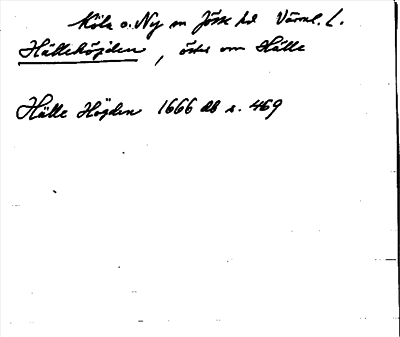 Köla o. Ny sn Jösse hd Värml. L.
Hällehöjden, öster om Hälle
Hälle Höjden 1666 db s. 469